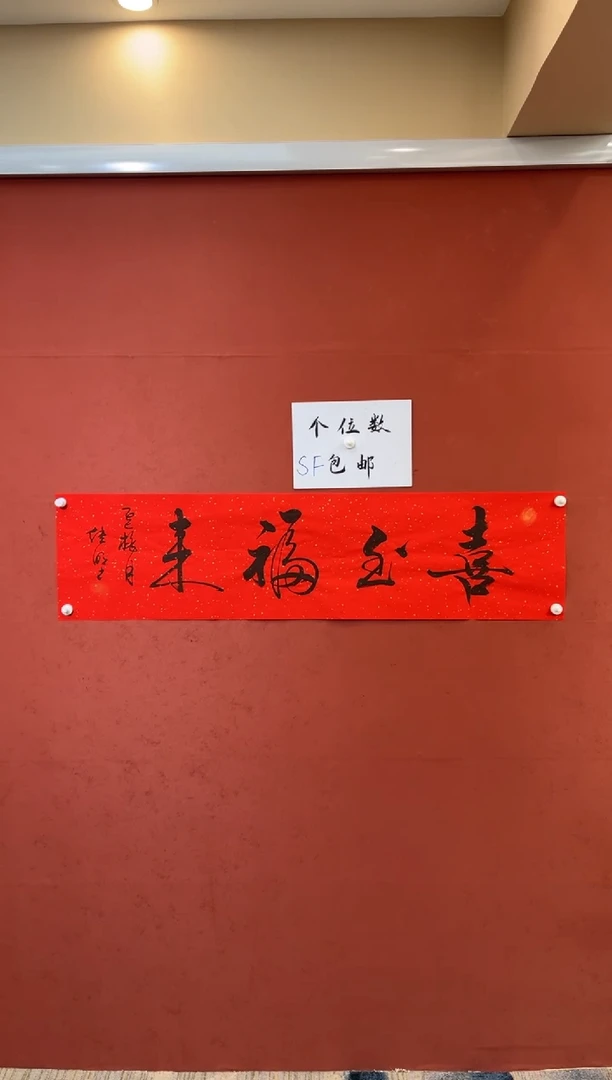 个位数
SF包邮
喜至福来